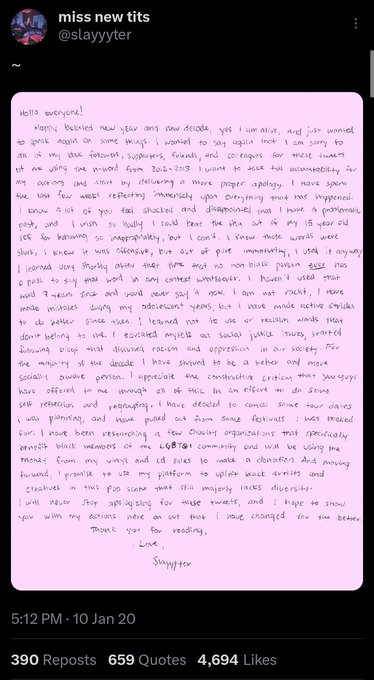 miss new tits
@slayyyter
~
Hello everyone!
Happy belated new year and new decade, yes I am alive, and just wanted
to speak again on some things. I wanted to say again that I am sorry to
all of my black followers, supporters, friends, and colleagues for these tweets
of me using the n-word from 2012-2013. I want to take full accountability for
my actions and start by delivering a more proper apology. I have spent
the last few weeks reflecting immensely upon everything that has happened.
I know a lot of you feel shocked and disappointed that I have a problematic
past, and I wish so badly I could beat the shit out of my 15 year old
self for behaving so inappropriately, but I can't. I knew those words were
slurs, I knew it was offensive, but out of pure immaturity, I used it anyway
I learned very shortly after that time that no non-black person ever has
a pass to say that word in any context whatsoever. I haven't used that
word 7 years since and would never say it now. I am not racist, I have
made mistakes during my adolescent years, but I have made active strides
to do better since then. I learned not to use or reclaim words that
don't belong to me. I educated myself on social justice issues, started
following blogs that discussed racism and oppression in our society. For
the majority of the decade I have strived to be a better and more
socially aware person. I appreciate the constructive critism that you guys
have offered to me through all of this. In an effort to do some
self reflection and regrouping, I have decided to cancel some tour dates
i was planning, and have pulled out from some festivals I was booked
for. I have been researching a few charity organizations that specifically
benefit black members of the LGBTQ+ community and will be using the
money from my vinyl and cd sales to make a donation. And moving
forward, I promise to use my platform to uplift black artists and
creatives in this pop scene that still majorly lacks diversity.
I will never stop apologizing for these tweets, and I hope to show
you with my actions here on out that i have changed for the better
Thank you for reading,
Love,
Slayyyter
5:12 PM · 10 Jan 20
390 Reposts 659 Quotes 4,694 Likes